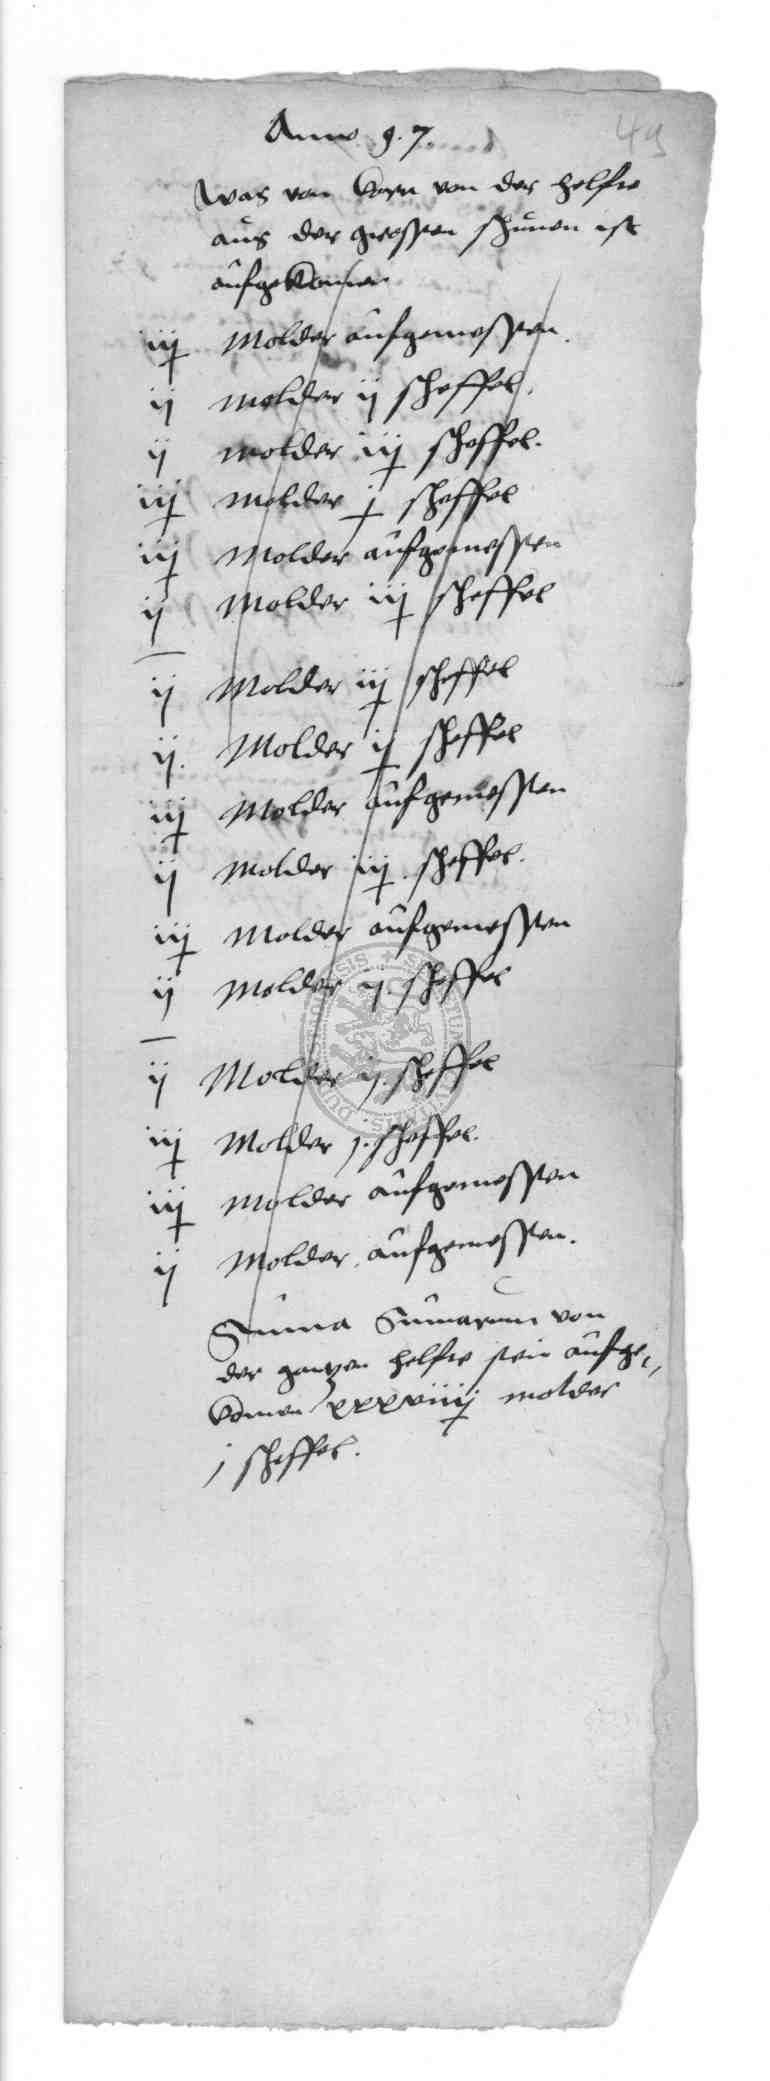 Anno 9.7.
49
Was von korn von der helfte
aus der grossen schunen ist
aufgekomen
iij Molder aufgemessen.
ij molder ij scheffel.
ij molder iij scheffel.
iij molder j scheffel
iij Molder aufgemessen
ij Molder iij scheffel
ij Molder iij scheffel
ij. Molder ij scheffel
iij Molder aufgemessen
ij Molder iij scheffel.
iij Molder aufgemessen
ij Molder ij. scheffel
ij Molder ij. scheffel
iij Molder j. scheffel.
iij Molder aufgemessen
ij Molder aufgemessen.
Suma Sumarum von
der gantzen helfte sein aufge,,
komen xxxviiij molder
j scheffel.